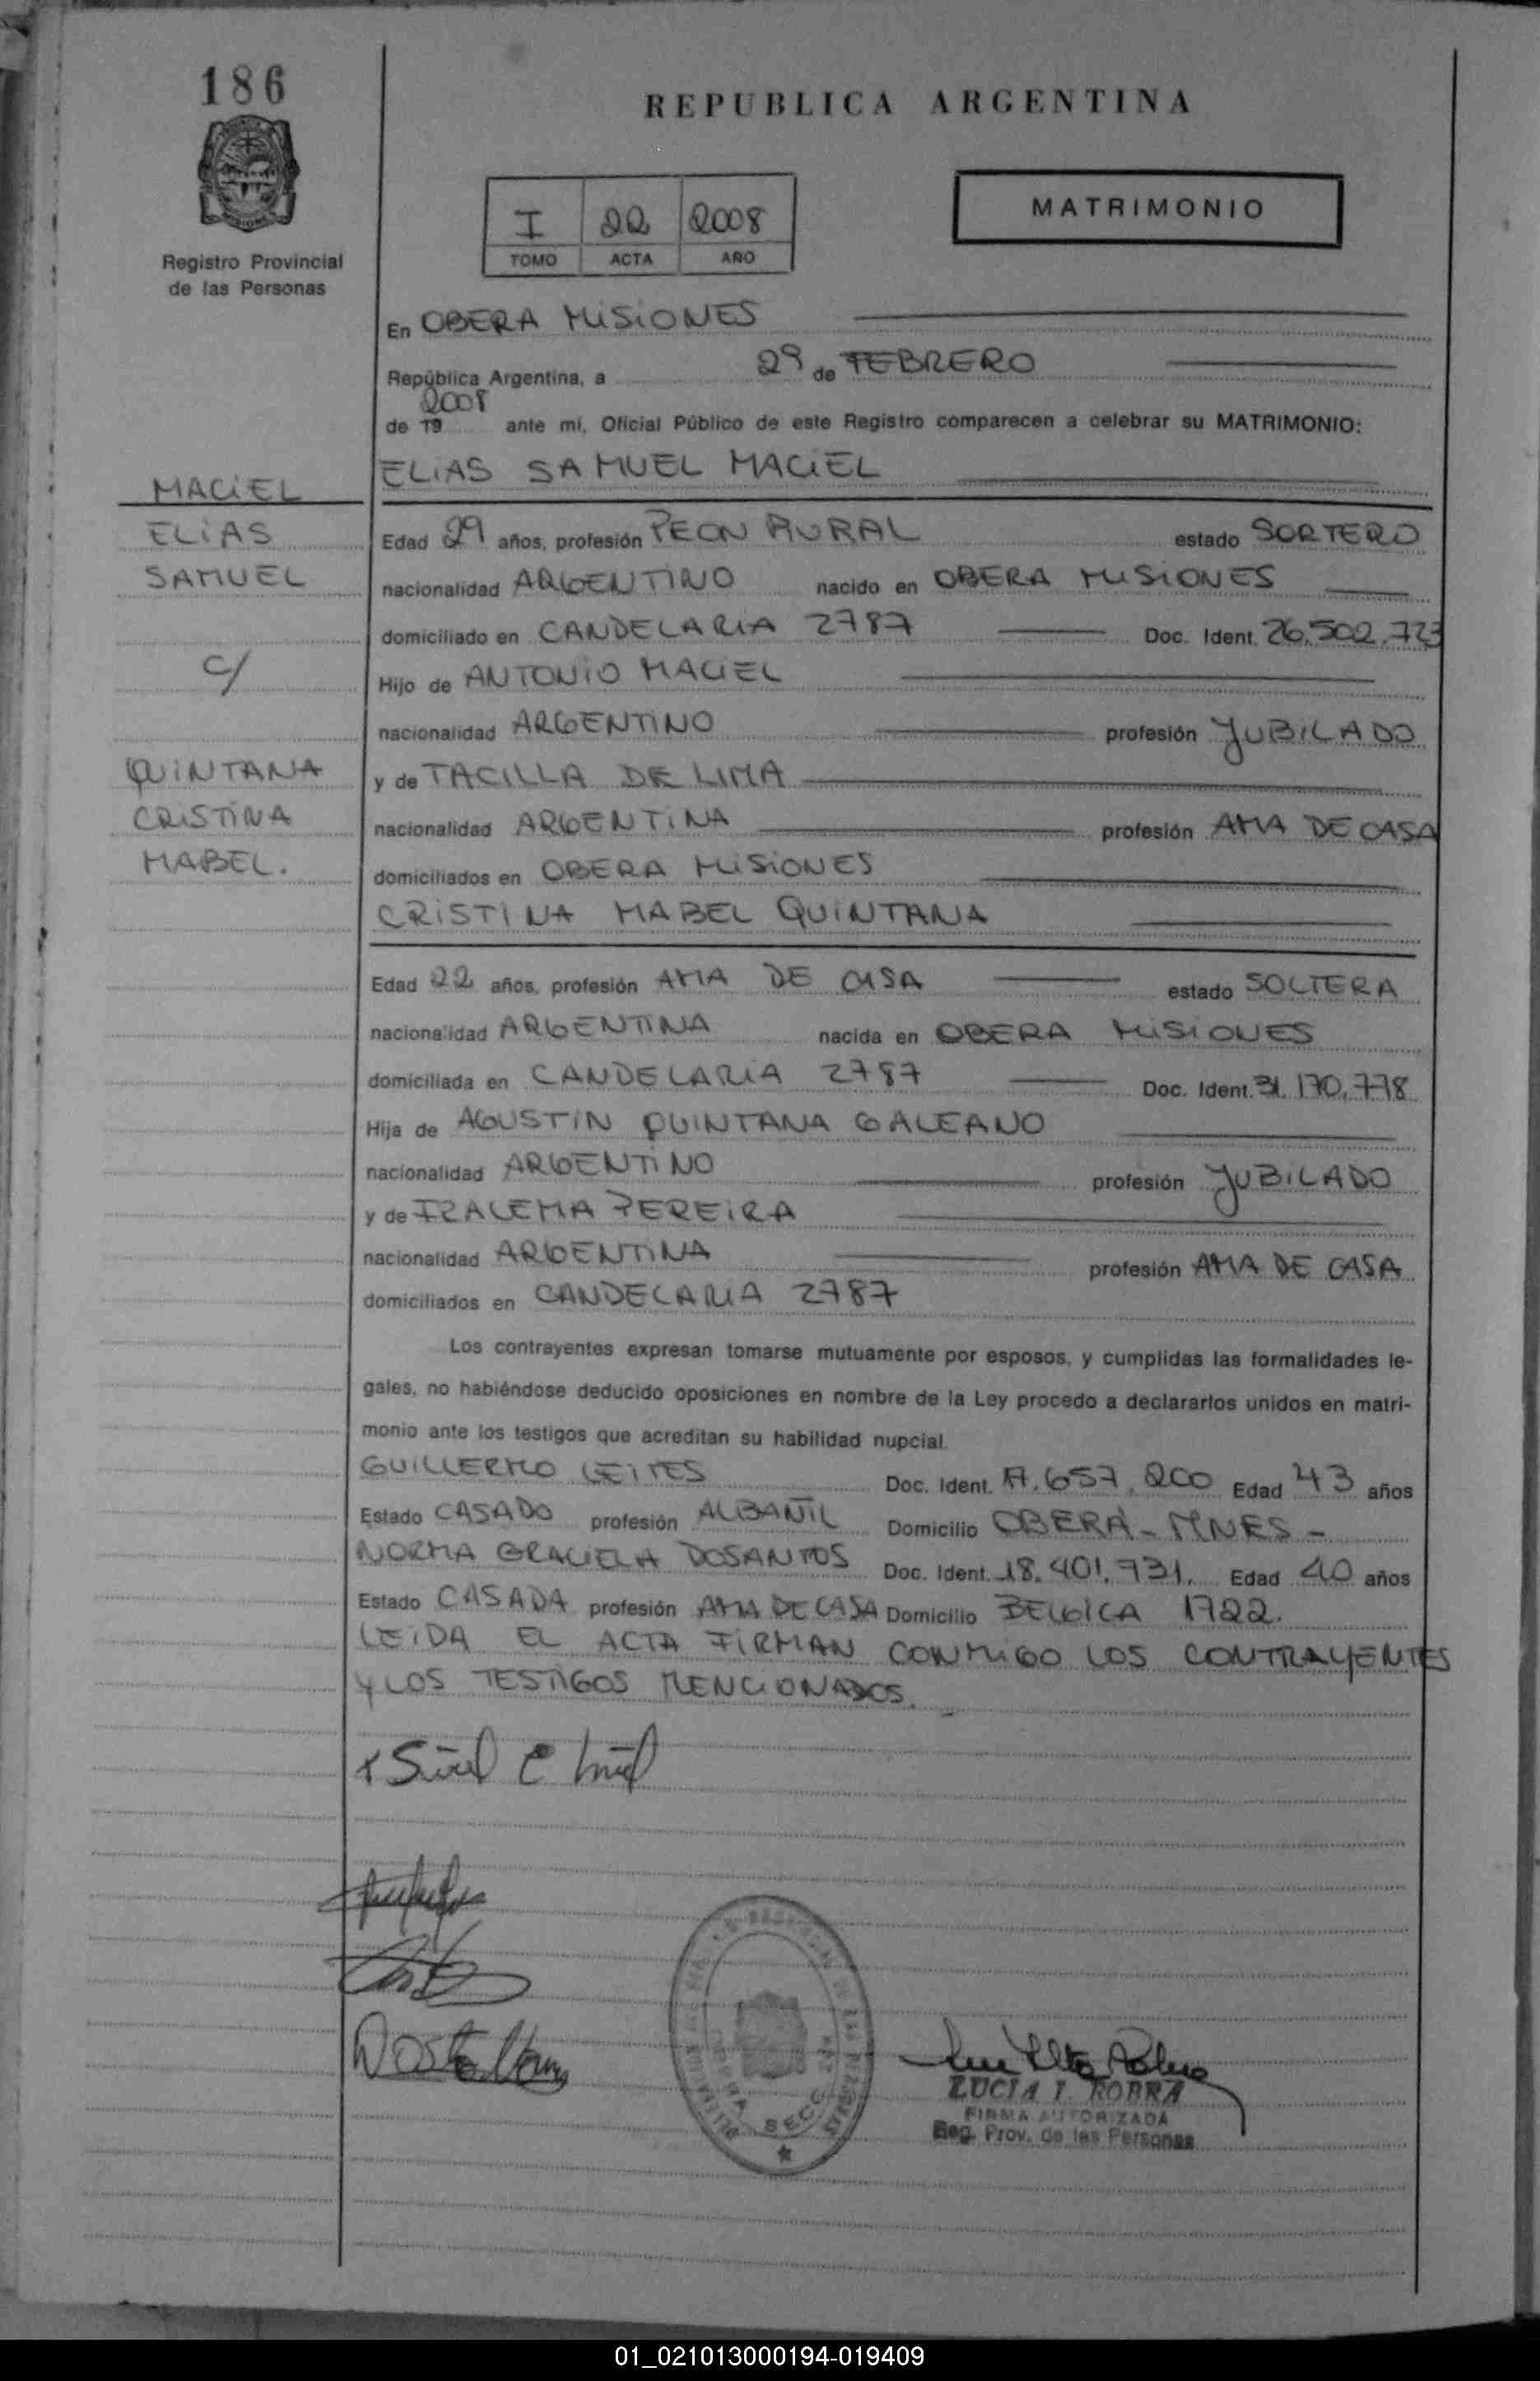 186
REPUBLICA ARGENTINA
I 22 2008
TOMO ACTA AÑO
MATRIMONIO
Registro Provincial
de las Personas
En OBERA MISIONES
República Argentina, a 29 de FEBRERO
2008
de 19 ante mí, Oficial Público de este Registro comparecen a celebrar su MATRIMONIO:
ELIAS SAMUEL MACIEL
MACIEL
ELIAS
SAMUEL
C/
QUINTANA
CRISTINA
MABEL.
Edad 29 años, profesión PEON RURAL estado SORTERO
nacionalidad ARGENTINO nacido en OBERA MISIONES
domiciliado en CANDELARIA 2787 Doc. Ident. 26.502.723
Hijo de ANTONIO MACIEL
nacionalidad ARGENTINO profesión JUBILADO
y de TACILLA DE LIMA
nacionalidad ARGENTINA profesión AMA DE CASA
domiciliados en OBERA MISIONES
CRISTINA MABEL QUINTANA
Edad 22 años, profesión AMA DE CASA estado SOLTERA
nacionalidad ARGENTINA nacida en OBERA MISIONES
domiciliada en CANDELARIA 2787 Doc. Ident. 31.170.778
Hija de AGUSTIN QUINTANA GALEANO
nacionalidad ARGENTINO profesión JUBILADO
y de IRACEMA PEREIRA
nacionalidad ARGENTINA profesión AMA DE CASA
domiciliados en CANDELARIA 2787
Los contrayentes expresan tomarse mutuamente por esposos, y cumplidas las formalidades le-
gales, no habiéndose deducido oposiciones en nombre de la Ley procedo a declararlos unidos en matri-
monio ante los testigos que acreditan su habilidad nupcial.
GUILLERMO LEITES Doc. Ident. 17.657.200 Edad 43 años
Estado CASADO profesión ALBAÑIL Domicilio OBERÁ - MNES -
NORMA GRACIELA DOSANTOS Doc. Ident. 18.401.731. Edad 40 años
Estado CASADA profesión AMA DE CASA Domicilio BELGICA 1722.
LEIDA EL ACTA FIRMAN CONMIGO LOS CONTRAYENTES
Y LOS TESTIGOS MENCIONADOS.
LUCIA I. BORRA
FIRMA AUTORIZADA
Reg. Prov. de las Personas
01_021013000194-019409